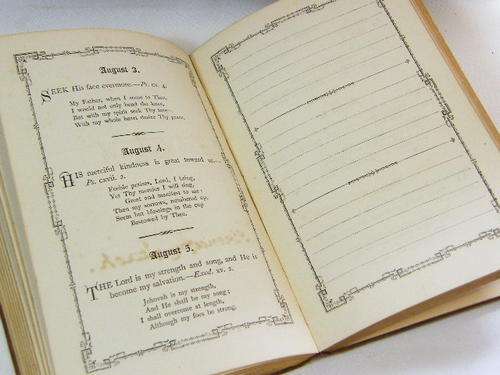 August 3.
SEEK His face evermore.—Ps. cv. 4.
My Father, when I come to Thee,
I would not only bend the knee,
But with my spirit seek Thy
With my whole heart desire Thy grace.
August 4.
HIS merciful kindness is great toward us.—
Ps. cxvii. 2.
Feeble praises, Lord, I bring,
Yet Thy mercies I will sing,
Great and manifest to me:
Then my sorrows, numbered up,
Seem but blessings in the cup
Bestowed by Thee.
August 5.
THE Lord is my strength and song, and He is
become my salvation.—Exod. xv. 2.
Jehovah is my strength,
And He shall be my song;
I shall overcome at length,
Although my foes be strong.